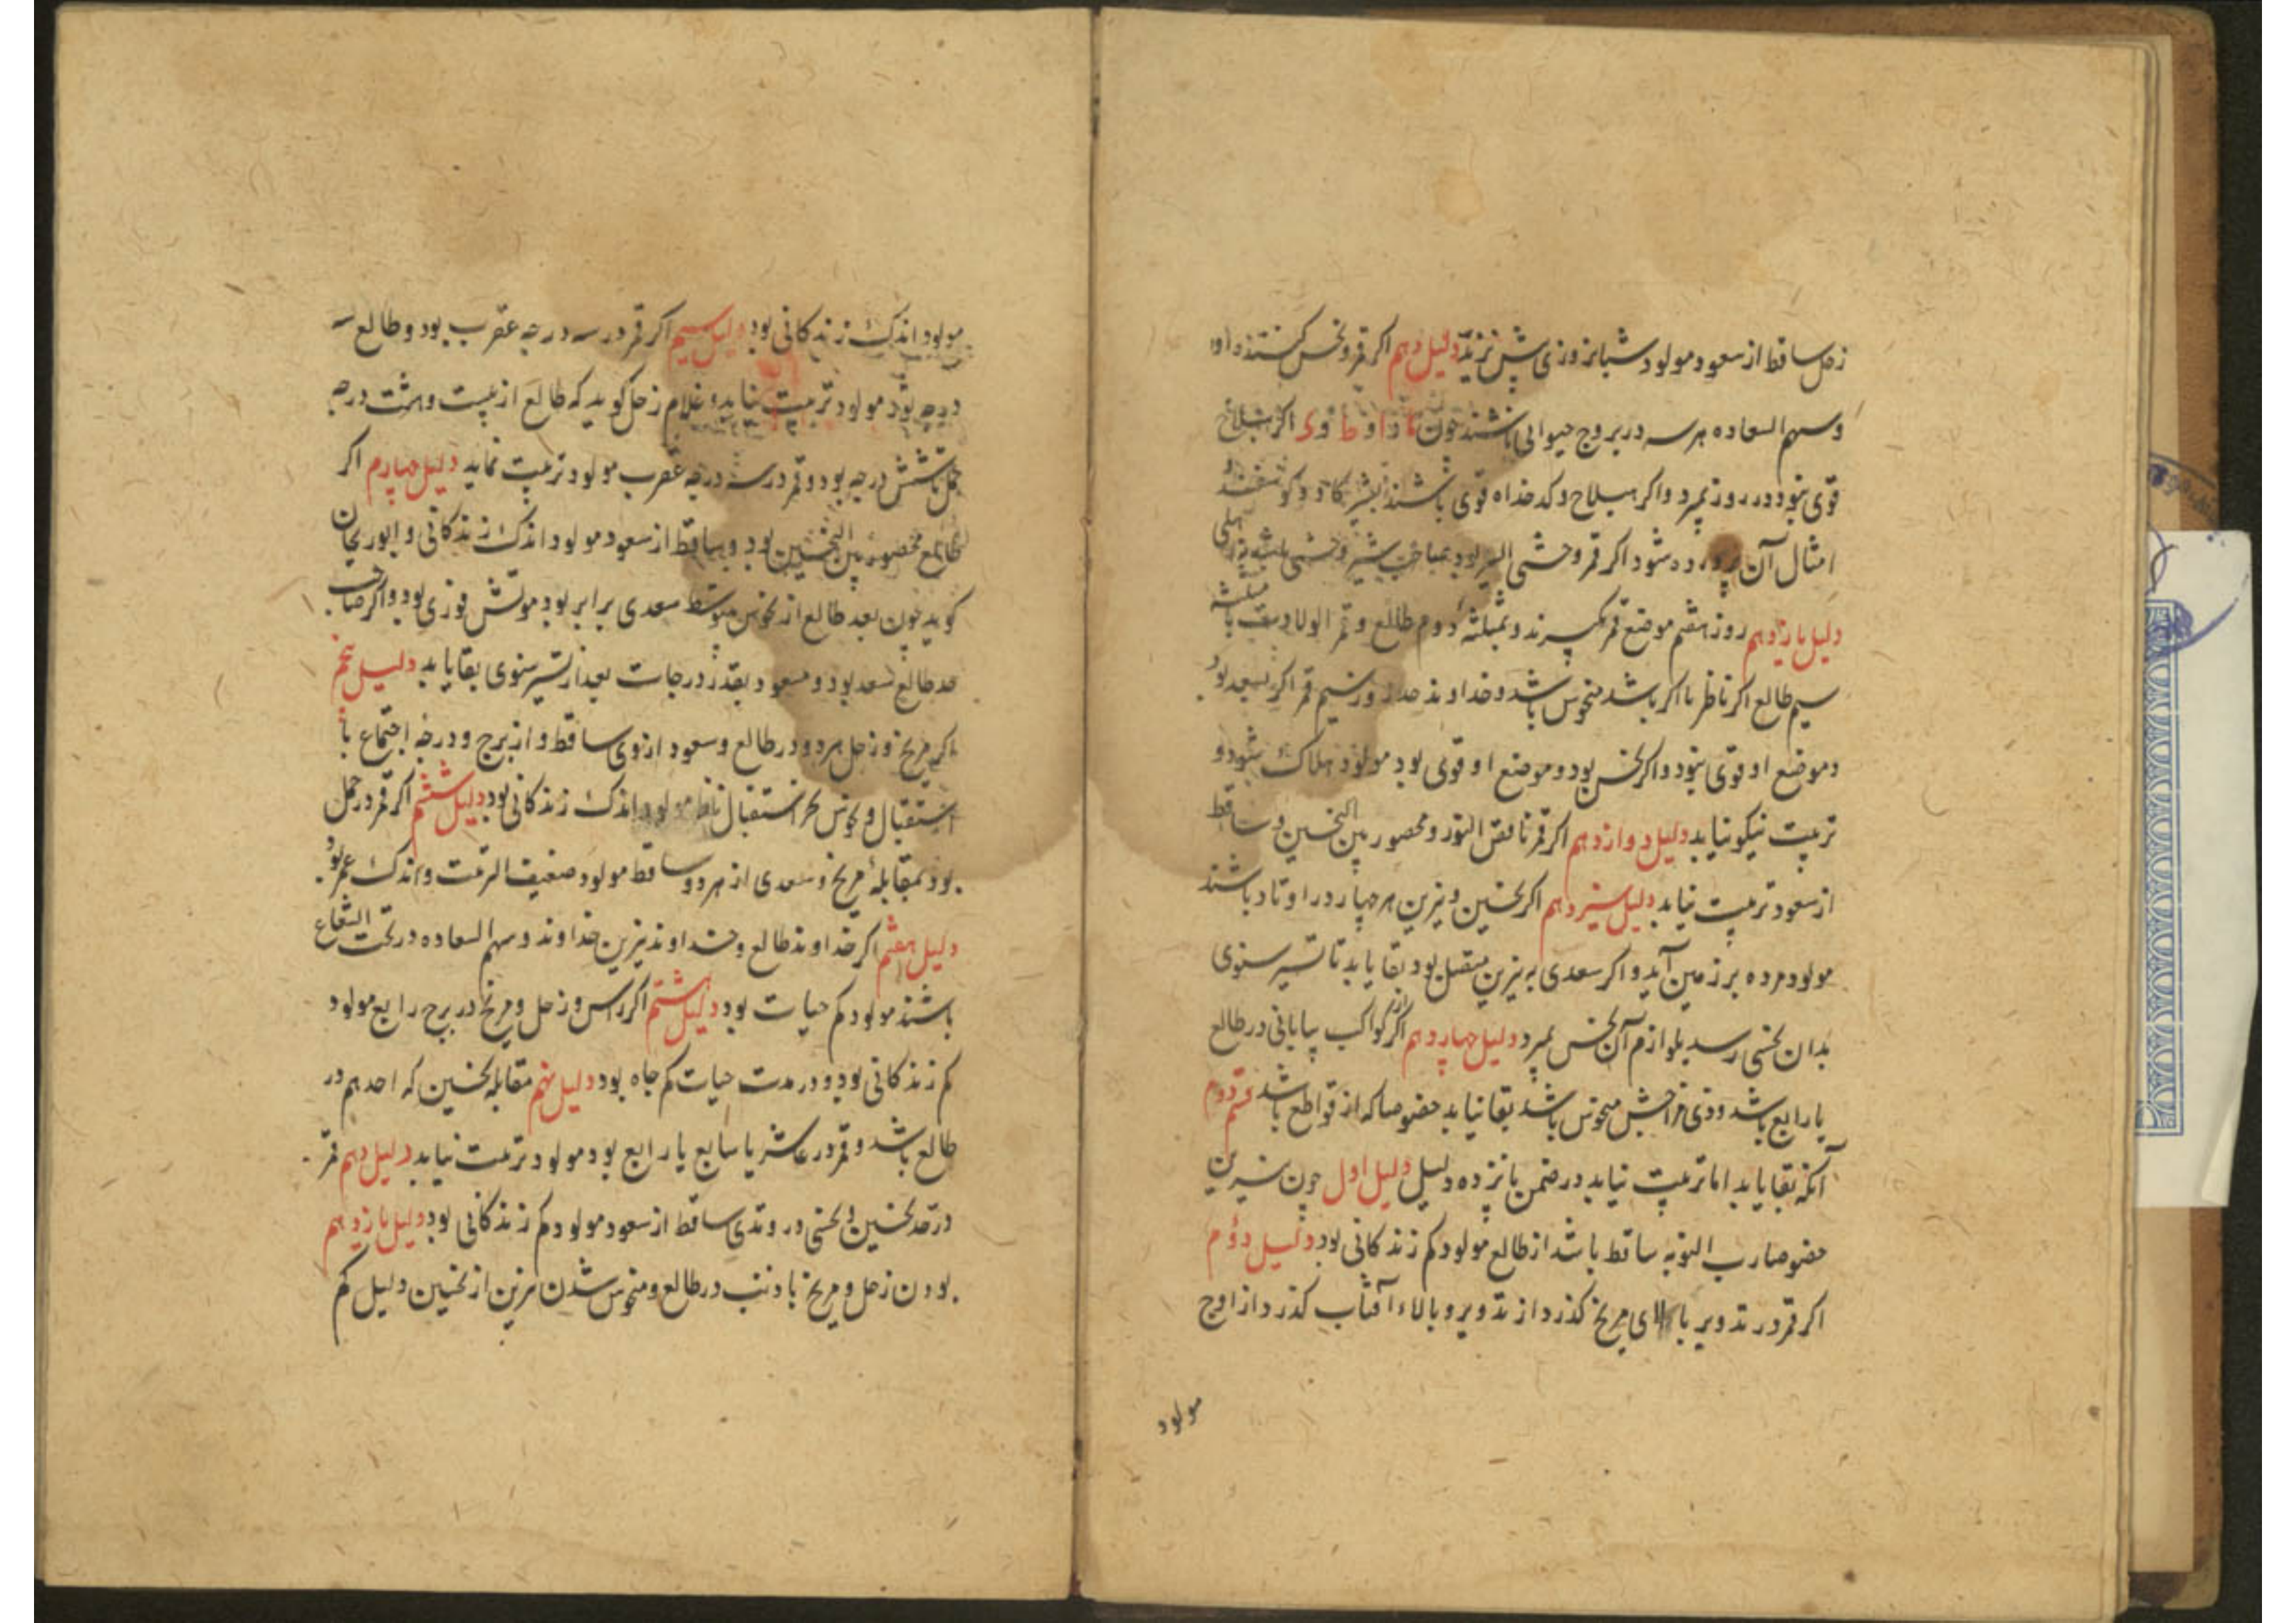 زحل ساقط از سعود مولود شبانروزی بیش نزید دلیل دهم اکر قمر و نحس کننده او
و سهم السعاده هر سه در بروج حیوانی باشند چون ا و ط و ی اکر هیلاج
قوی نبود در روز بمیرد و اکر هیلاج و کدخداه قوی باشند بشیر کاو و کوسفند و
امثال آن پرورده شود اکر قمر وحشی السیر بود
دلیل یازدهم روز هفتم موضع قمر بکیرند و بمثلثه دوم طالع و قمر الولادت با مثلثه
سیم طالع اکر ناظر باشد منحوس باشد و خداوند حد روز سیم قمر اکر سعد بود
و موضع او قوی نبود و اکر نحس بود و موضع او قوی بود مولود هلاک شود و
تربیت نیکو نیابد دلیل دوازدهم اکر قمر ناقص النور و محصور بین النحسین و ساقط
از سعود تربیت نیابد دلیل سیزدهم اکر نحسین و نیرین هر چهار در اوتاد باشند
مولود مرده بر زمین آید و اکر سعدی به نیرین متصل بود بقا یابد تا تسییر سنوی
بدان نحسی رسد بلوازم آن نحس بمیرد دلیل چهاردهم اکر از کواکب بیابانی در طالع
یا رابع باشد و ذی مزاجش منحوس باشد بقا نیابد خصوصا که از قواطع باشد قسم دوم
آنکه بقا یابد اما تربیت نیابد در ضمن پانزده دلیل دلیل اول چون نیرین
خصوصا رب النوبه ساقط باشد از طالع مولود کم زندکانی بود دلیل دوم
اکر قمر در تدویر بالای مریخ کذرد از تدویر و بالاء آفتاب کذرد از اوج
مولود
مولود اندک زندکانی بود دلیل سیم اکر قمر در سه درجه عقرب بود و طالع سه
درجه ثور مولود تربیت نیابد و غلام زحل کوید که طالع از بیست و هشت درجه
حمل تا شش درجه بود و قمر در سه درجه عقرب مولود تربیت نیابد دلیل چهارم اکر
طالع محصور بین النحسین بود و ساقط از سعود مولود اندک زندکانی و ابوریحان
کوید چون بعد طالع از نحوس متوسط سعدی برابر بود موتش فوری بود و اکر صاحب
حد طالع سعد بود و مسعود بقدر درجات بعد از تسییر سنوی بقا یابد دلیل پنجم
اکر مریخ و زحل هر دو در طالع و سعود از وی ساقط و از برج و درجه اجتماع یا
استقبال و نحوس بجزء استقبال ناظر مولود اندک زندکانی بود دلیل ششم اکر قمر در حمل
بود بمقابله مریخ و سعدی از هر دو ساقط مولود ضعیف التربیت و اندک عمر بود
دلیل هفتم اکر خداوند طالع و خداوند نیرین خداوند و سهم السعاده در تحت الشعاع
باشند مولود کم حیات بود دلیل هشتم اکر راس و زحل و مریخ در برج رابع مولود
کم زندکانی بود و در مدت حیات کم جاه بود دلیل نهم مقابله نحسین که احدهم در
طالع باشد و قمر در عاشر یا سابع یا رابع بود مولود تربیت نیابد دلیل دهم قمر
در حد نحسین و نحسی در وتدی ساقط از سعود مولود کم زندکانی بود دلیل یازدهم
بودن زحل و مریخ با ذنب در طالع و منحوس شدن نیرین از نحسین دلیل کم